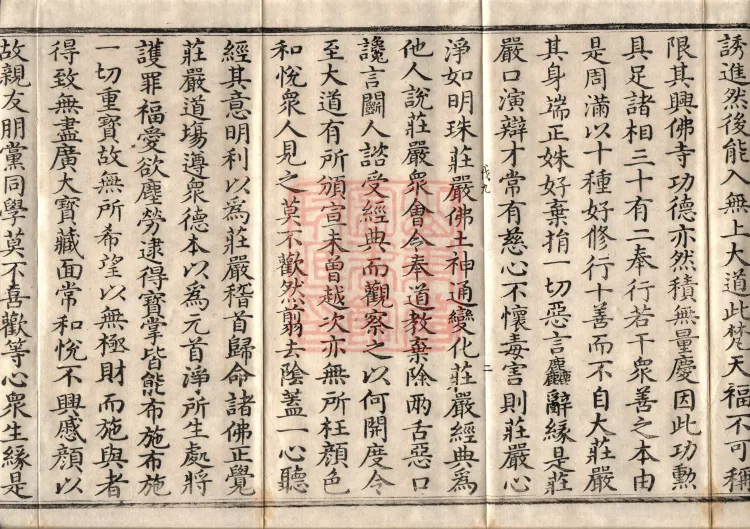 誘進然後能入無上大道此梵天福不可稱
限其興佛寺功德亦然積無量慶因此功勲
具足諸相三十有二奉行若干衆善之本由
是周滿以十種好修行十善而不自大莊嚴
其身端正姝好棄捐一切惡言麤辭緣是莊
嚴口演辯才常有慈心不懷毒害則莊嚴心
淨如明珠莊嚴佛土神通變化莊嚴經典爲
他人說莊嚴衆會令奉道教棄除兩舌惡口
讒言鬬人諮受經典而觀察之以何開度令
至大道有所頒宣未曾越次亦無所枉顏色
和悅衆人見之莫不歡然翦去陰蓋一心聽
經其意明利以爲莊嚴稽首歸命諸佛正覺
莊嚴道場遵衆德本以爲元首淨所生處將
護罪福愛欲塵勞逮得寶掌皆能布施布施
一切重寶故無所希望以無極財而施與者
得致無盡廣大寶藏面常和悅不興慼顏以
故親友朋黨同學莫不喜歡等心衆生緣是